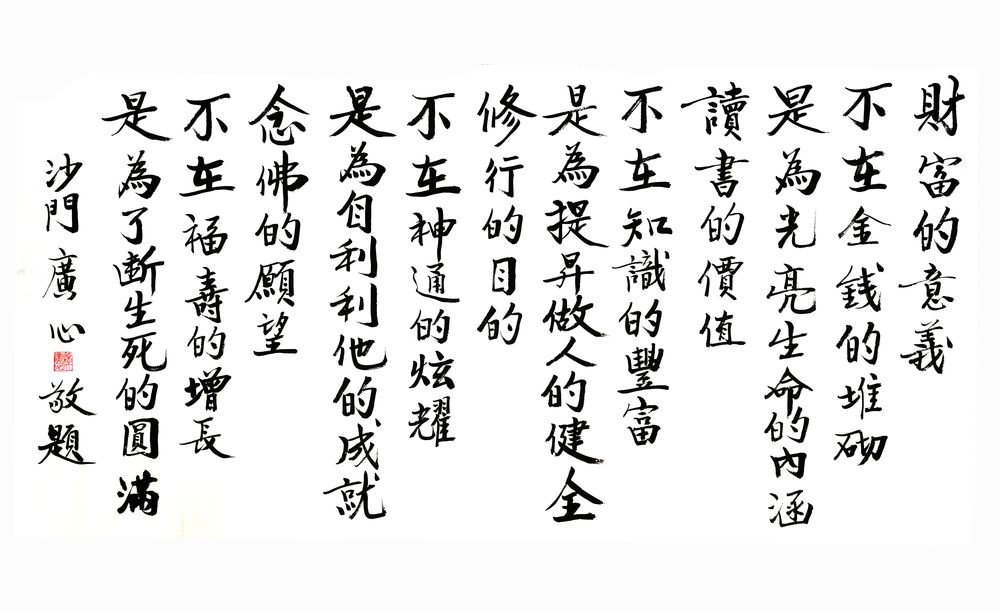 財富的意義
不在金錢的堆砌
是為光亮生命的內涵
讀書的價值
不在知識的豐富
是為提昇做人的健全
修行的目的
不在神通的炫耀
是為自利利他的成就
念佛的願望
不在福壽的增長
是為了斷生死的圓滿
沙門廣心敬題